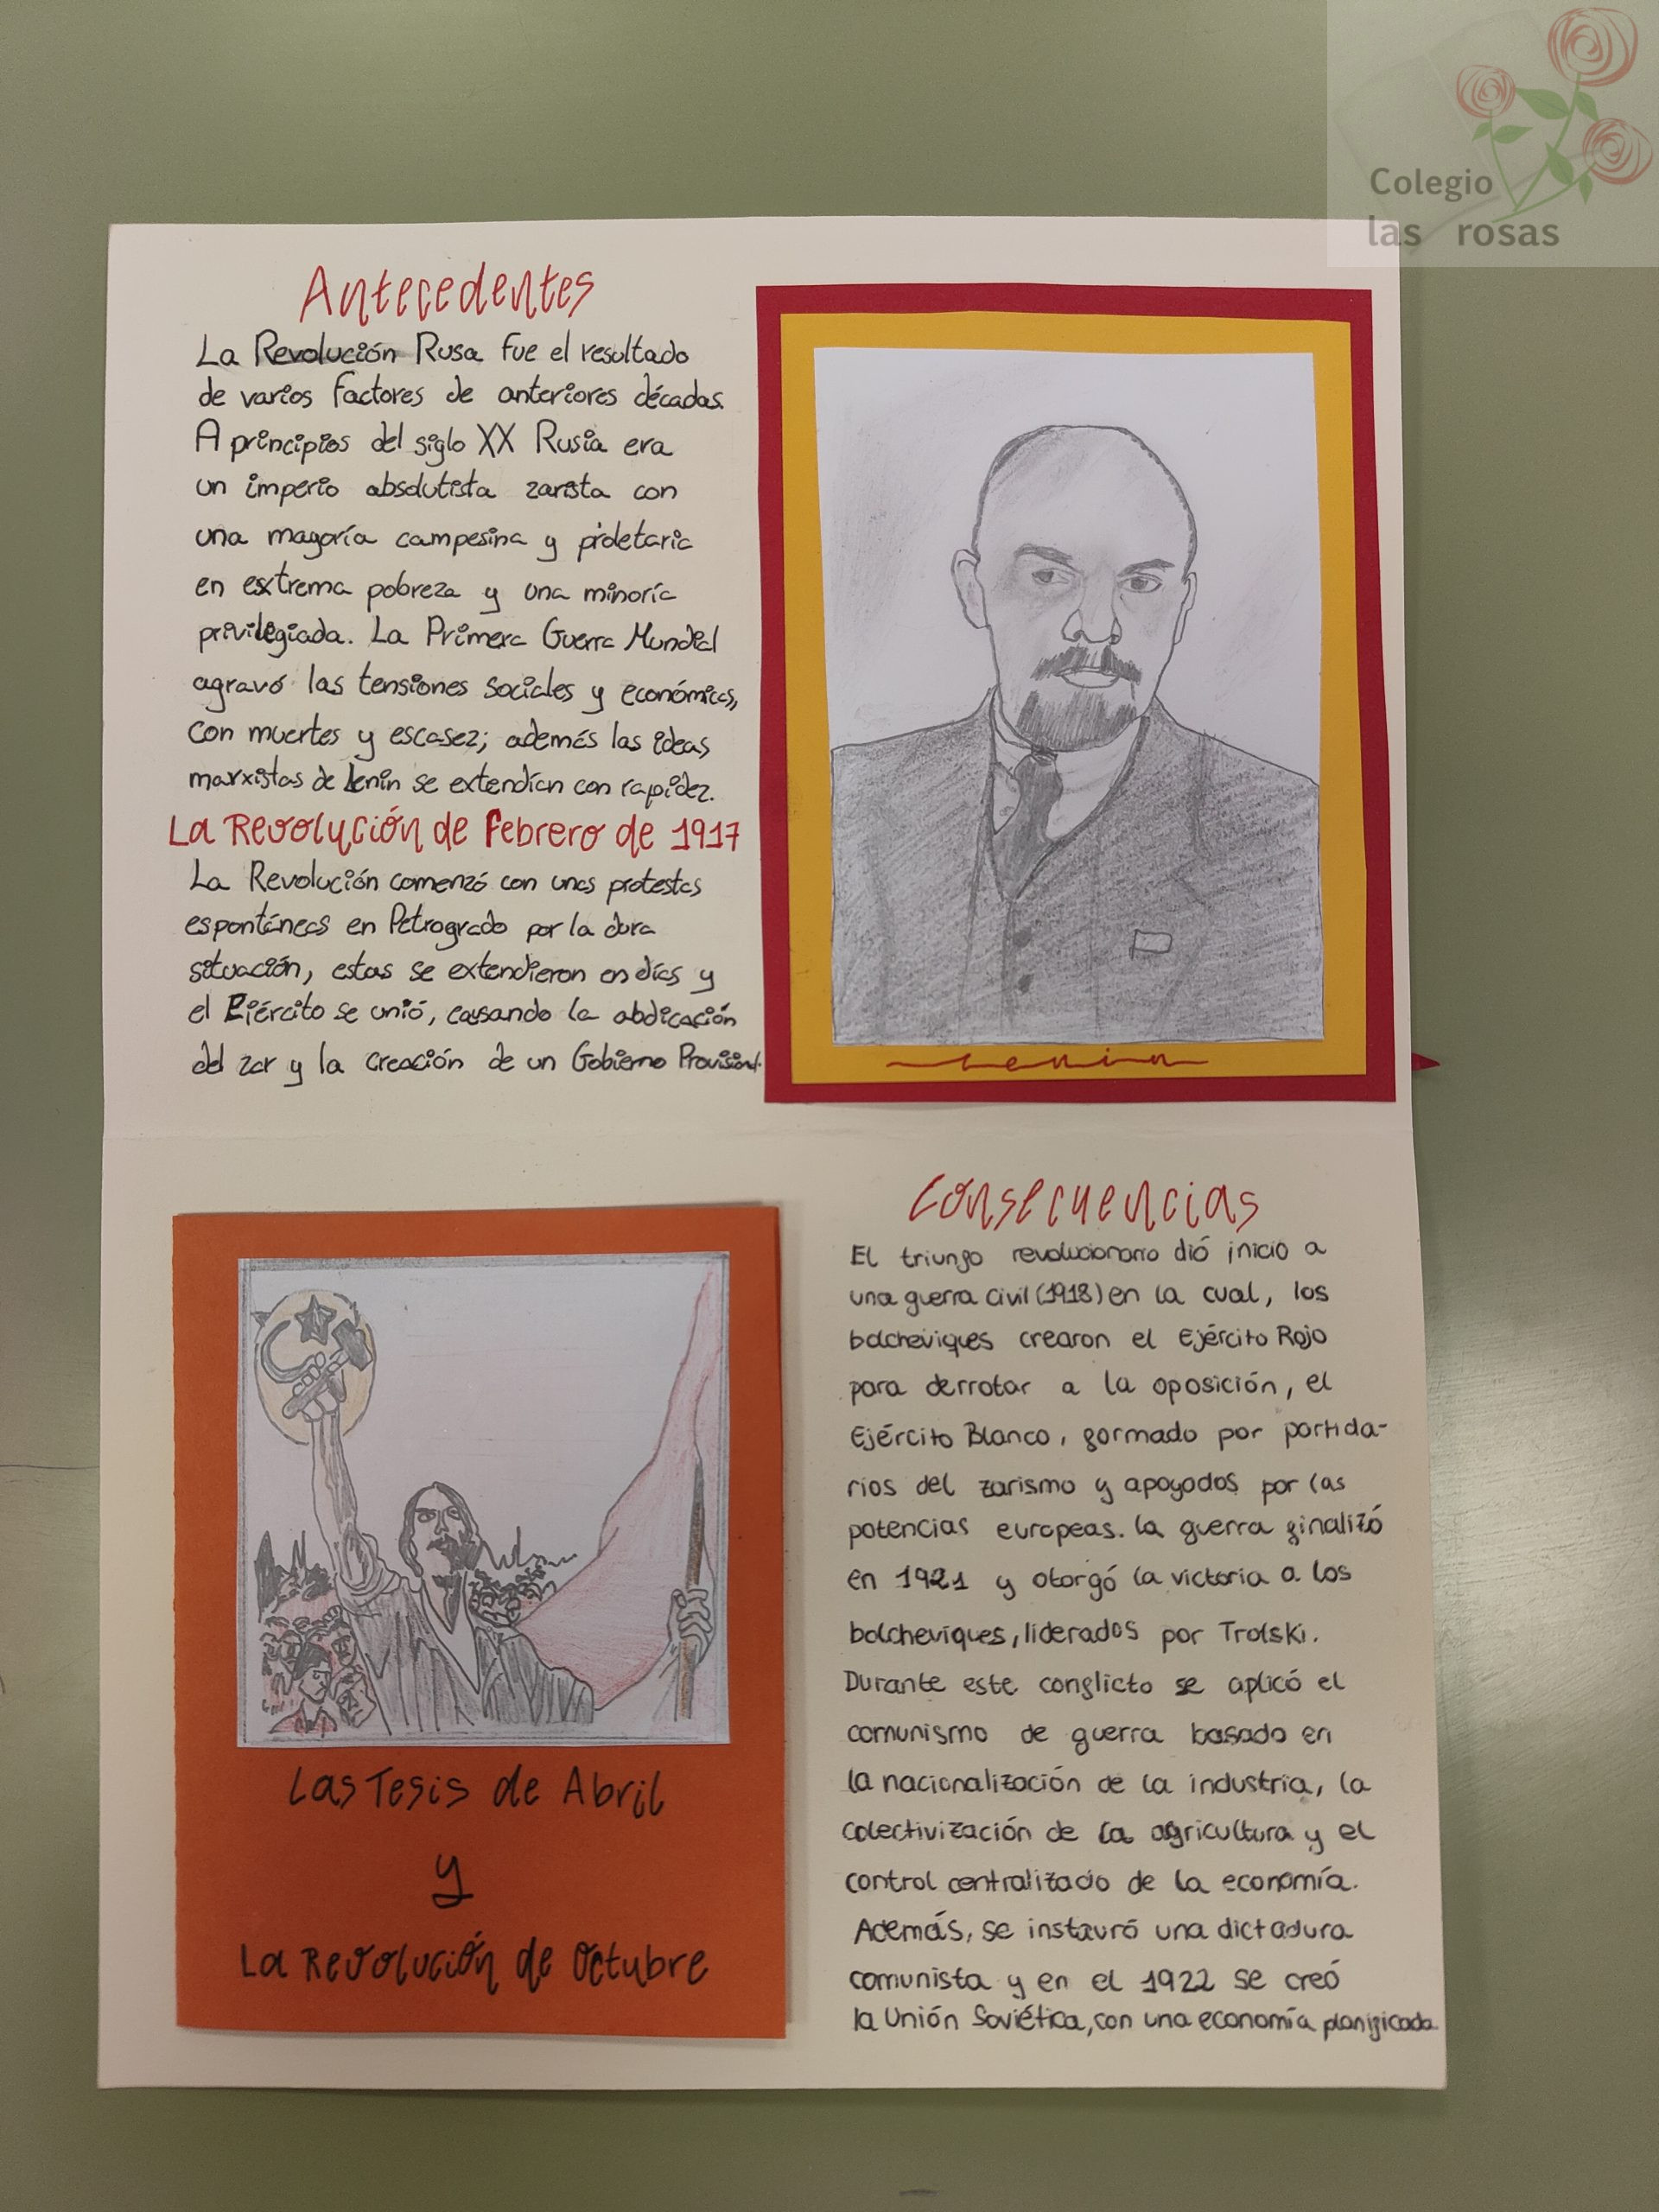 Colegio
las rosas
Antecedentes
La Revolución Rusa fue el resultado
de varios factores de anteriores décadas.
A principios del siglo XX Rusia era
un imperio absolutista zarista con
una mayoría campesina y proletaria
en extrema pobreza y una minoría
privilegiada. La Primera Guerra Mundial
agravó las tensiones sociales y económicas,
con muertes y escasez; además las ideas
marxistas de Lenin se extendían con rapidez.
La Revolución de Febrero de 1917
La Revolución comenzó con unas protestas
espontáneas en Petrogrado por la dura
situación, estas se extendieron en días y
el Ejército se unió, causando la abdicación
del zar y la creación de un Gobierno Provisional.
Lenin
Las Tesis de Abril
y
La Revolución de Octubre
Consecuencias
El triunfo revolucionario dió inicio a
una guerra civil (1918) en la cual, los
bolcheviques crearon el Ejército Rojo
para derrotar a la oposición, el
Ejército Blanco, formado por partida-
rios del zarismo y apoyados por las
potencias europeas. La guerra finalizó
en 1921 y otorgó la victoria a los
bolcheviques, liderados por Trotski.
Durante este conflicto se aplicó el
comunismo de guerra basado en
la nacionalización de la industria, la
colectivización de la agricultura y el
control centralizado de la economía.
Además, se instauró una dictadura
comunista y en el 1922 se creó
la Unión Soviética, con una economía planificada.